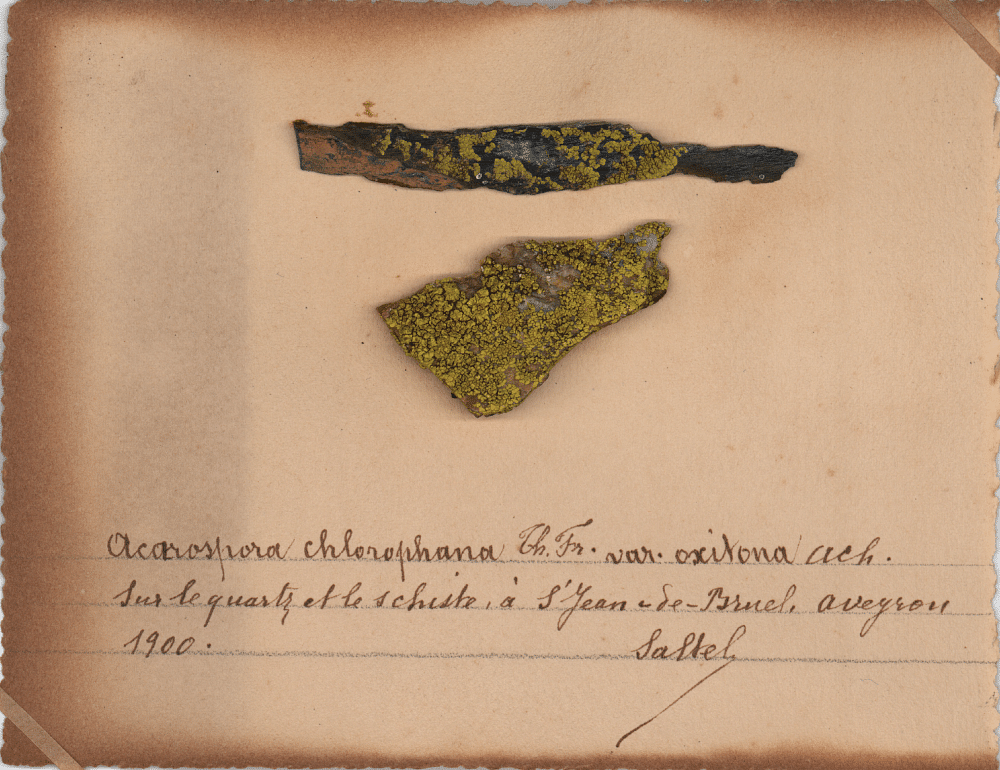 Acarospora chlorophana Th. Fr. var. oxitona ach.
Sur le quartz et le schiste, à St Jean-de-Bruel, aveyron
1900. Saltel